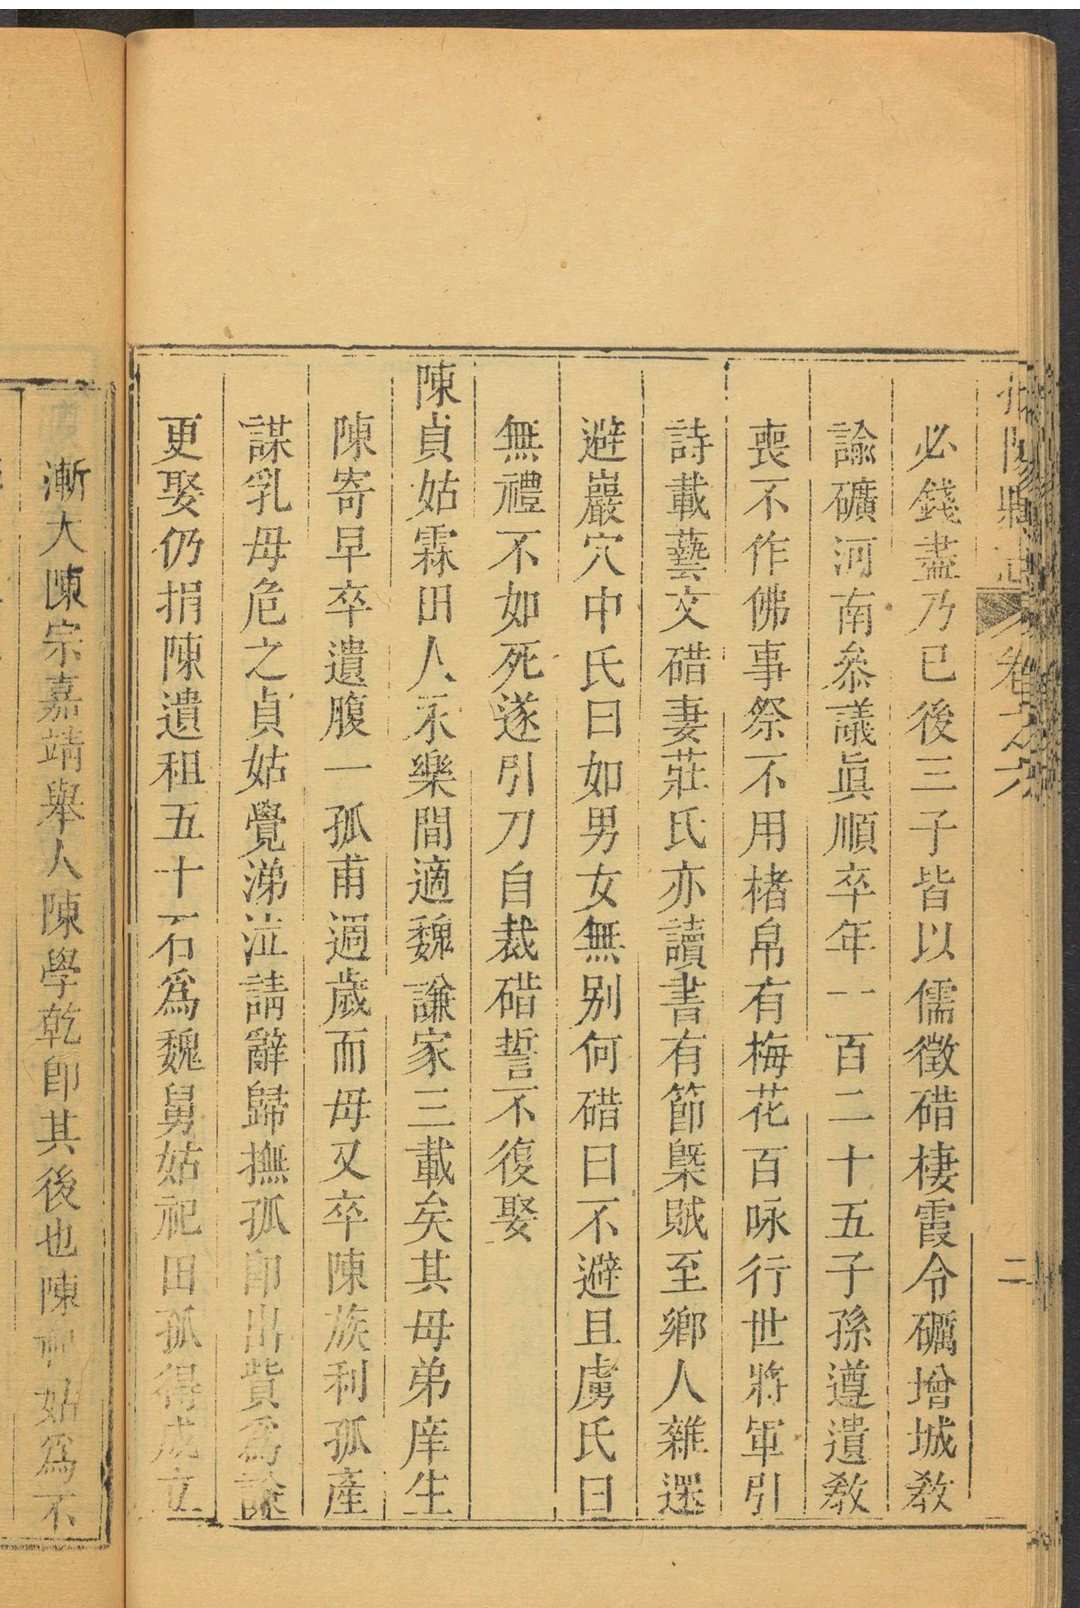 陽縣志 卷之六 二
必錢盡乃已後三子皆以儒徵碏棲霞令礪增城教
諭礦河南叅議眞順卒年一百二十五子孫遵遺教
喪不作佛事祭不用楮帛有梅花百咏行世將軍引
詩載藝文碏妻莊氏亦讀書有節槩賊至鄉人雜遝
避巖穴中氏曰如男女無别何碏曰不避且虜氏曰
無禮不如死遂引刀自裁碏誓不復娶
陳貞姑霖田人永樂間適魏謙家三載矣其母弟庠生
陳寄早卒遺腹一孤甫週歲而母又卒陳族利孤產
謀乳母危之貞姑覺涕泣請辭歸撫孤即出貲為謙
更娶仍捐陳遺租五十石爲魏舅姑祀田孤得成立
漸大陳宗嘉靖舉人陳學乾即其後也陳姑爲不